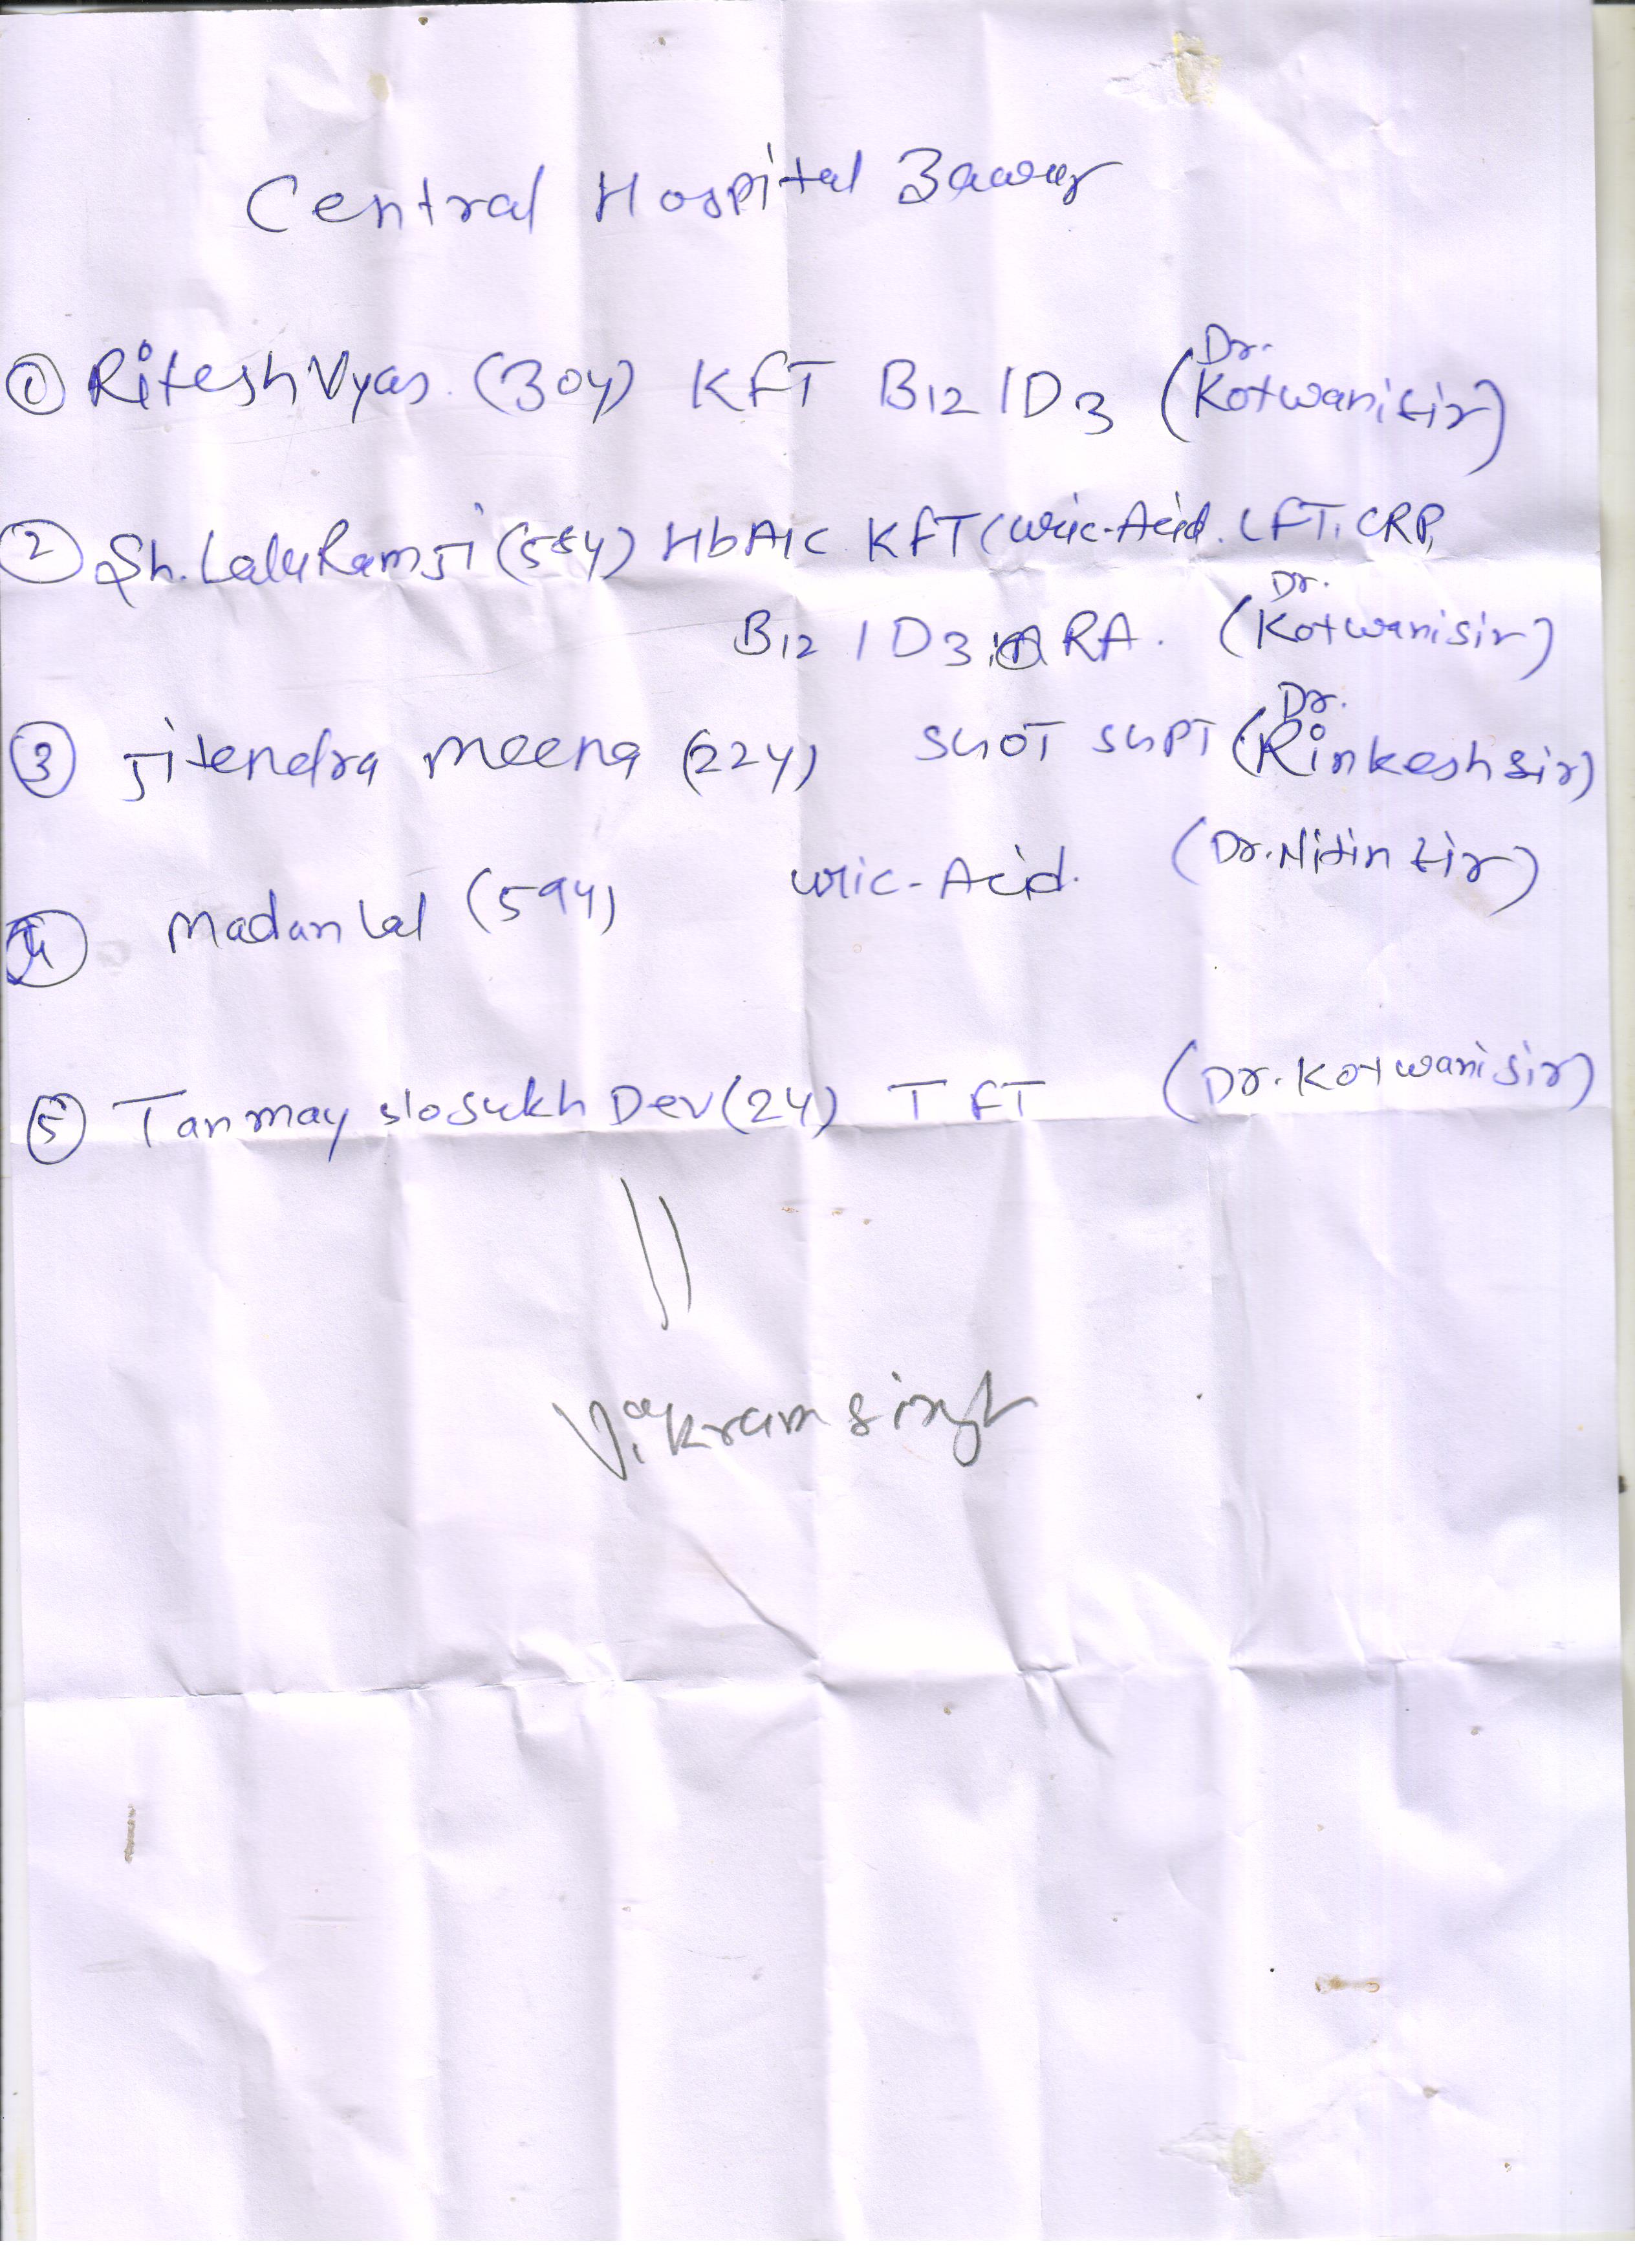 Central Hospital Zawar
① Ritesh Vyas. (30y) KFT B12 / D3 (Dr. Kotwani sir)
② Sh. Lalu Ram Ji (58y) HbA1C KFT (Uric-Acid. LFT, CRP,
B12 / D3, RA. (Dr. Kotwani sir)
③ Jitendra Meena (22y) SGOT SGPT (Dr. Rinkesh sir)
④ Madan Lal (59y) Uric-Acid. (Dr. Nitin sir)
⑤ Tanmay s/o sukh Dev (2y) TFT (Dr. Kotwani sir)
Vikram singh